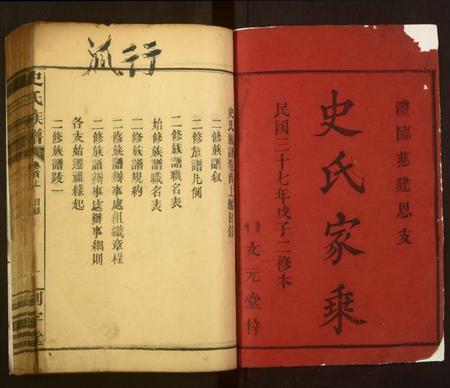 澧臨慈建恩支
史氏家乘
民國三十七年戊子二修本
文元堂梓
派行
史氏族譜卷首上編目錄
二修族譜叙
二修族譜凡例
二修族譜職名表
始修族譜職名表
二修族譜規約
二修族譜辦事處組織章程
二修族譜辦事處辦事細則
各支始遷祖緣起
二修族譜跋一
史氏族譜
卷首上
目錄